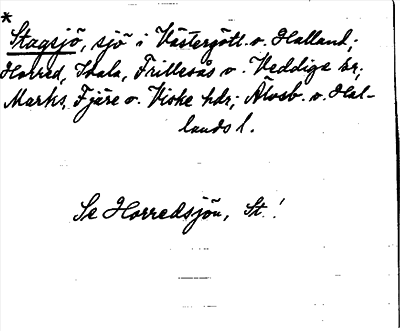 *
Stagsjö, sjö i Västergötl. o. Halland;
Horred, Idala, Frillesås o. Veddige sn;
Marks, Fjäre o. Viske hdr; Älvsb. o. Hal-
lands l.
Se Horredsjön, St.!